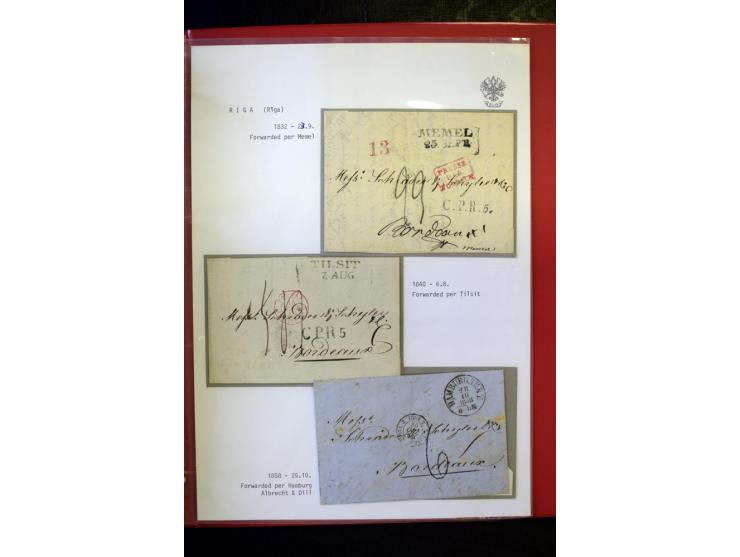 R I G A (Rīga)
1832 - 23.9.
Forwarded per Memel
MEMEL
25. SEPR.
13
PRUSSE
PAR
C.P.R.5.
Messrs Schröder & Schyler & Co
Bordeaux
1840 - 6.8.
Forwarded per Tilsit
TILSIT
7 AUG
Messrs Schröder & Schyler
C.P.R 5
Bordeaux
1858 - 25.10.
Forwarded per Hamburg
Albrecht & Dill
HAMBURG
Messrs
Schröder & Schyler & Co
Bordeaux